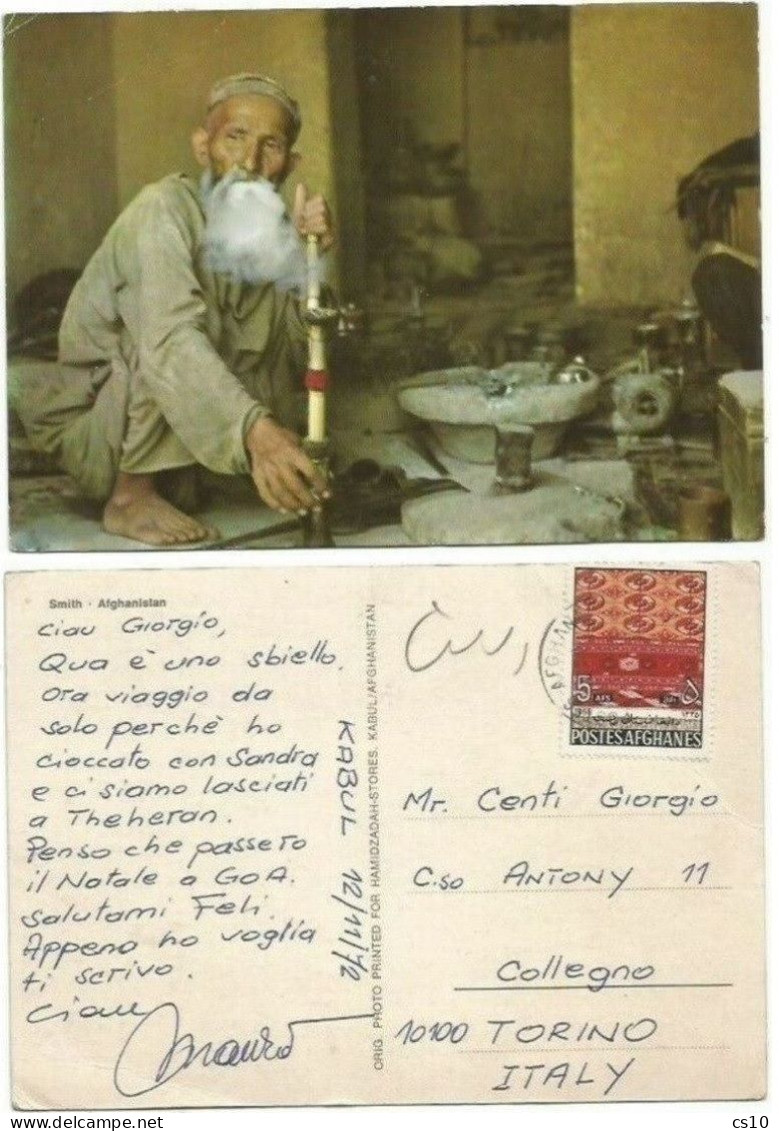 Smith · Afghanistan
Ciau Giorgio,
Qua è uno sbiello.
Ora viaggio da
solo perchè ho
cioccato con Sandra
e ci siamo lasciati
a Theheran.
Penso che passerò
il Natale a GOA.
Salutami Feli.
Appena ho voglia
ti scrivo.
Ciau
KABUL 12/11/72
ORIG. PHOTO PRINTED FOR HAMIDZADAH-STORES. KABUL/AFGHANISTAN
AFGHAN
5
AFS
۵
POSTES AFGHANES
Mr. Centi Giorgio
C.so ANTONY 11
Collegno
10100 TORINO
ITALY
cs10